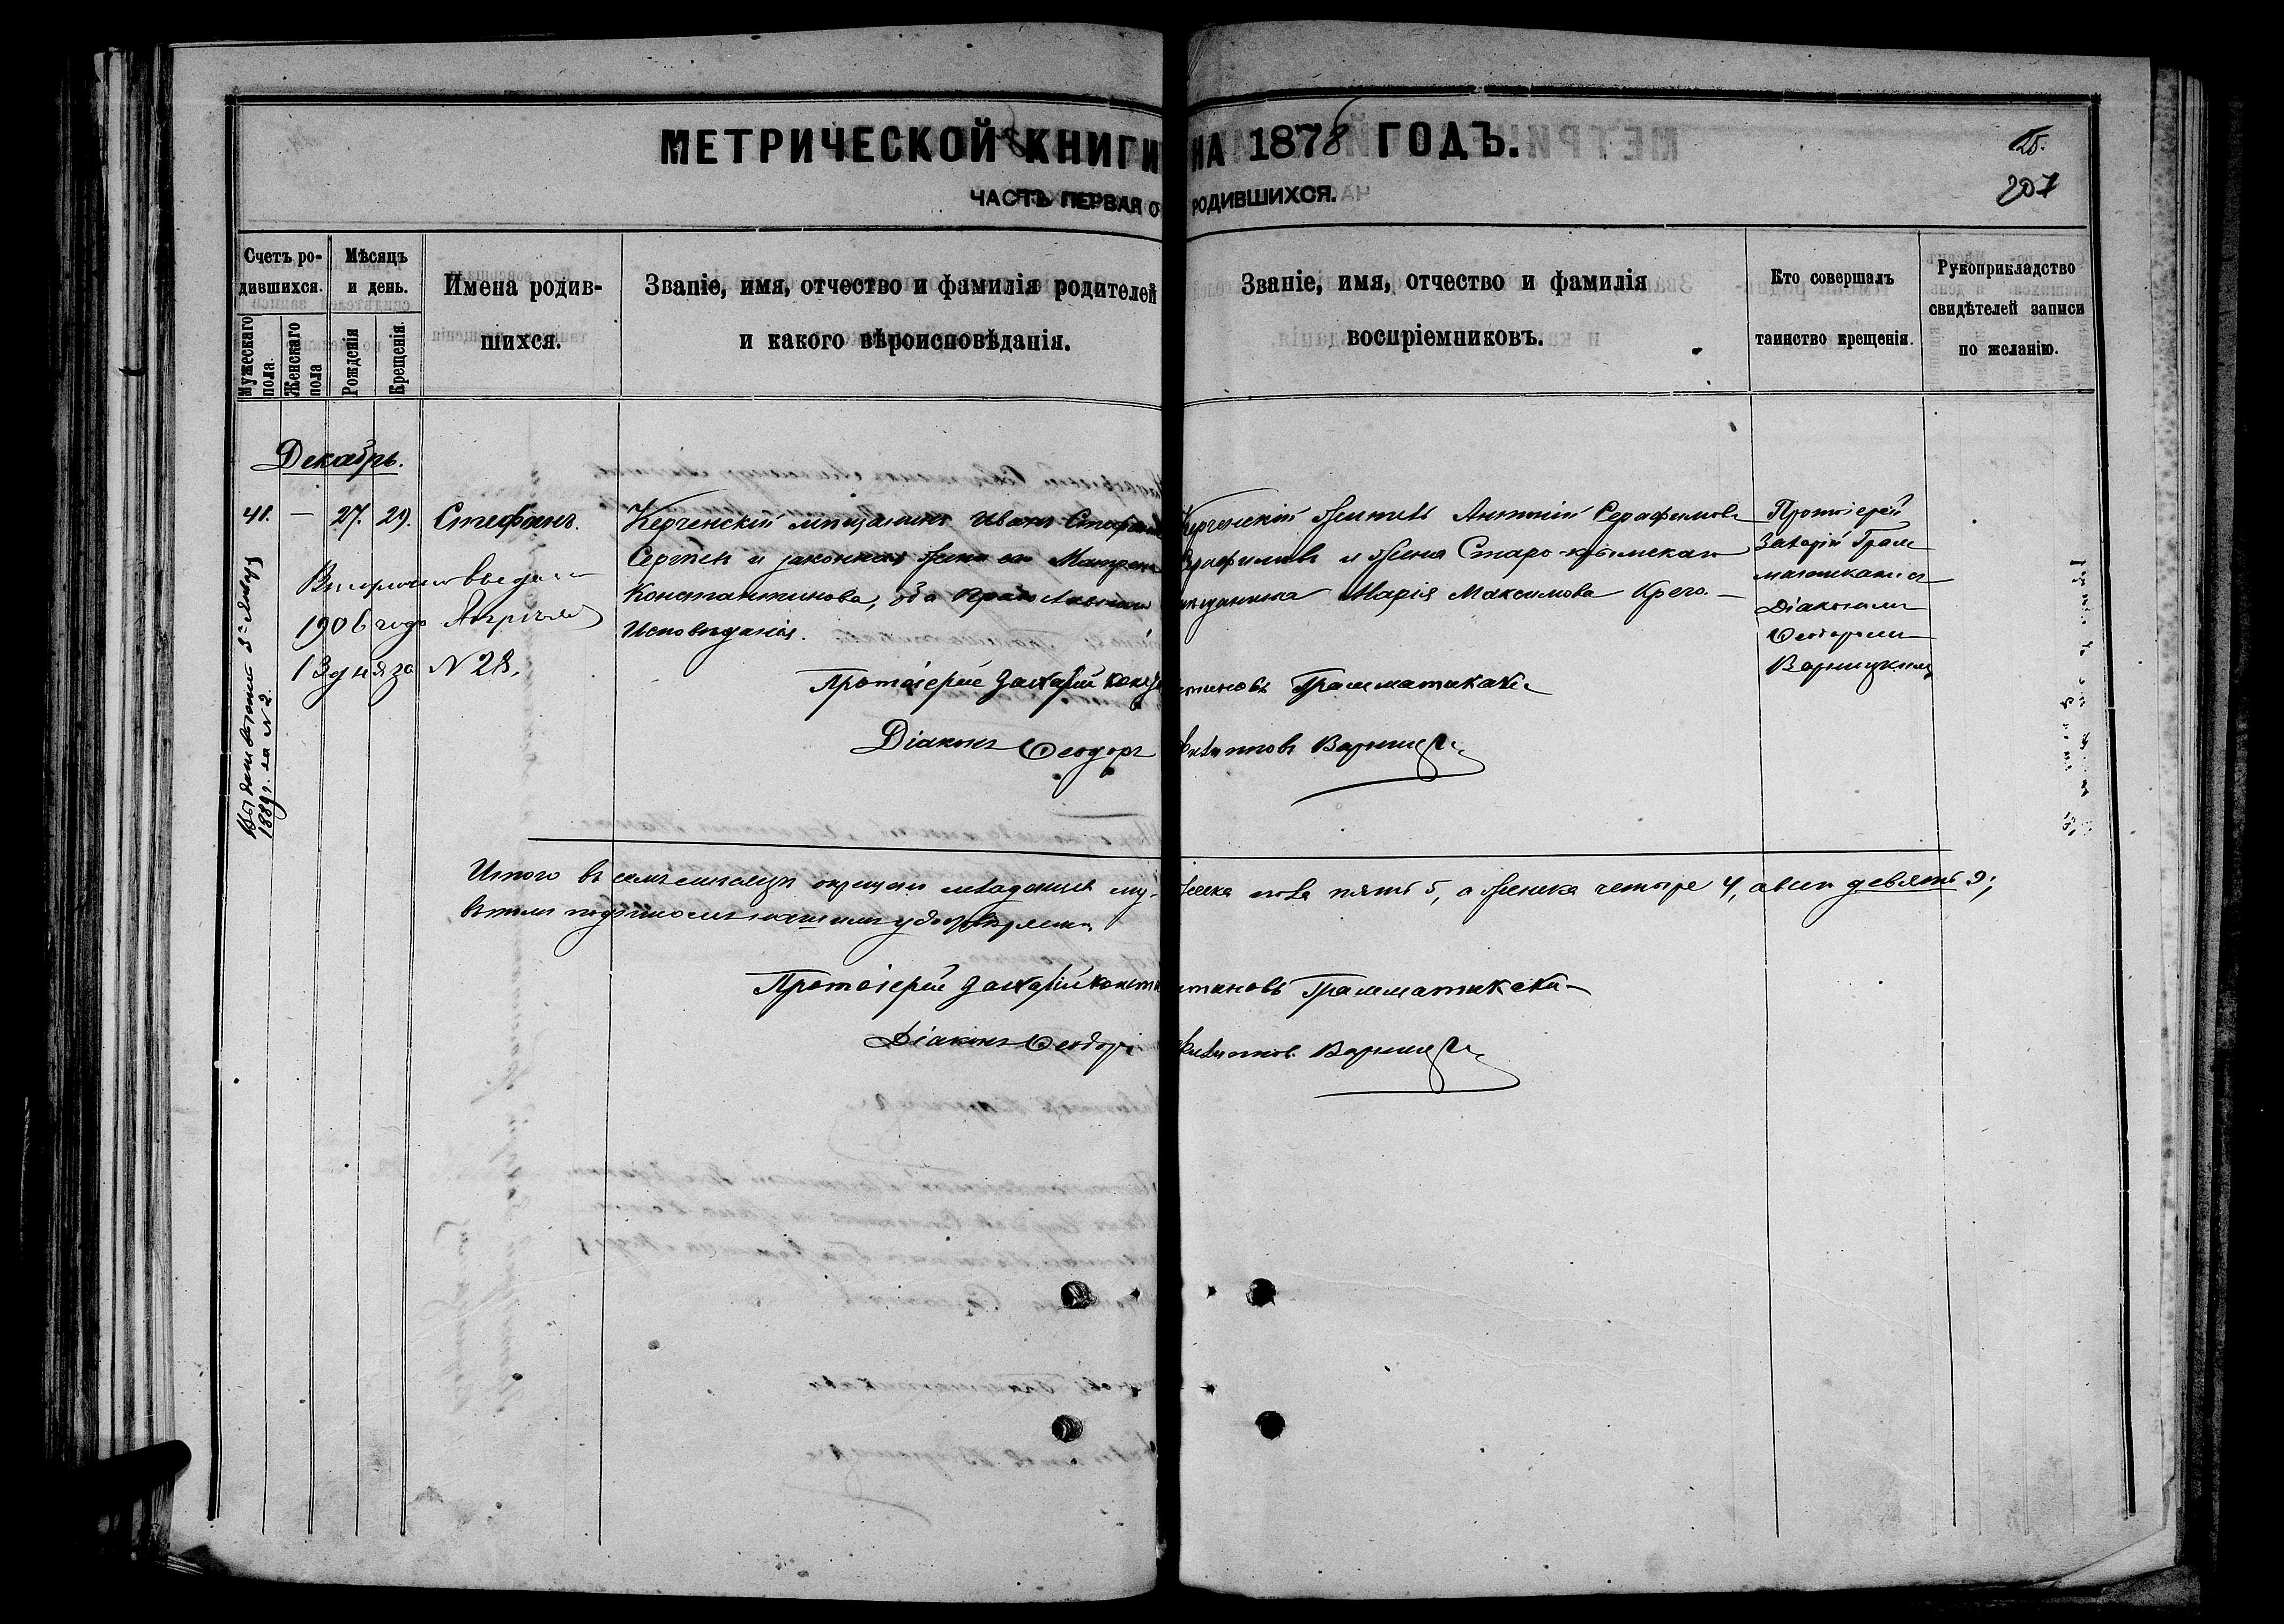 МЕТРИЧЕСКОЙ КНИГИ НА 1878 ГОДЪ.
ЧАСТЬ ПЕРВАЯ О РОДИВШИХСЯ.
207
Счетъ родившихся.
Мужескаго пола.
Женскаго пола
Мѣсяцъ и день.
Рожденія
Крещенія.
Имена родив-
шихся.
Званіе, имя, отчество и фамилія родителей
и какого вѣроисповѣданія.
Званіе, имя, отчество и фамилія
воспріемниковъ.
Кто совершалъ
таинство крещенія.
Рукоприкладство
свидѣтелей записи
по желанію.
Декабрь.
41. — 27. 29. Стефанъ.
Керченскій мѣщанинъ Иванъ
и законная жена его
Константинова, оба Православнаго
Исповѣданія.
Керченскій житель Антоній Серафимовъ
и жена Старо-крымскаго
мѣщанина Марія Максимова
Протоіерей
Захарій Грам
матикаки съ
Діакономъ
Ѳеодоромъ
Варницкимъ
Вторично выдано
1906 года Апрѣля
13 дня за № 28.
1889 г. за № 2.
Протоіерей Захарій Константиновъ Грамматикаки
Діаконъ Ѳеодоръ Филипповъ Варницкій
Итого въ семъ мѣсяцѣ окрещено младенцевъ му-
жеска пола пять 5, а женска четыре 4, а всего девять 9;
въ томъ подписомъ нашимъ удостовѣряемъ
Протоіерей Захарій Константиновъ Грамматикаки
Діаконъ Ѳеодоръ Филипповъ Варницкій